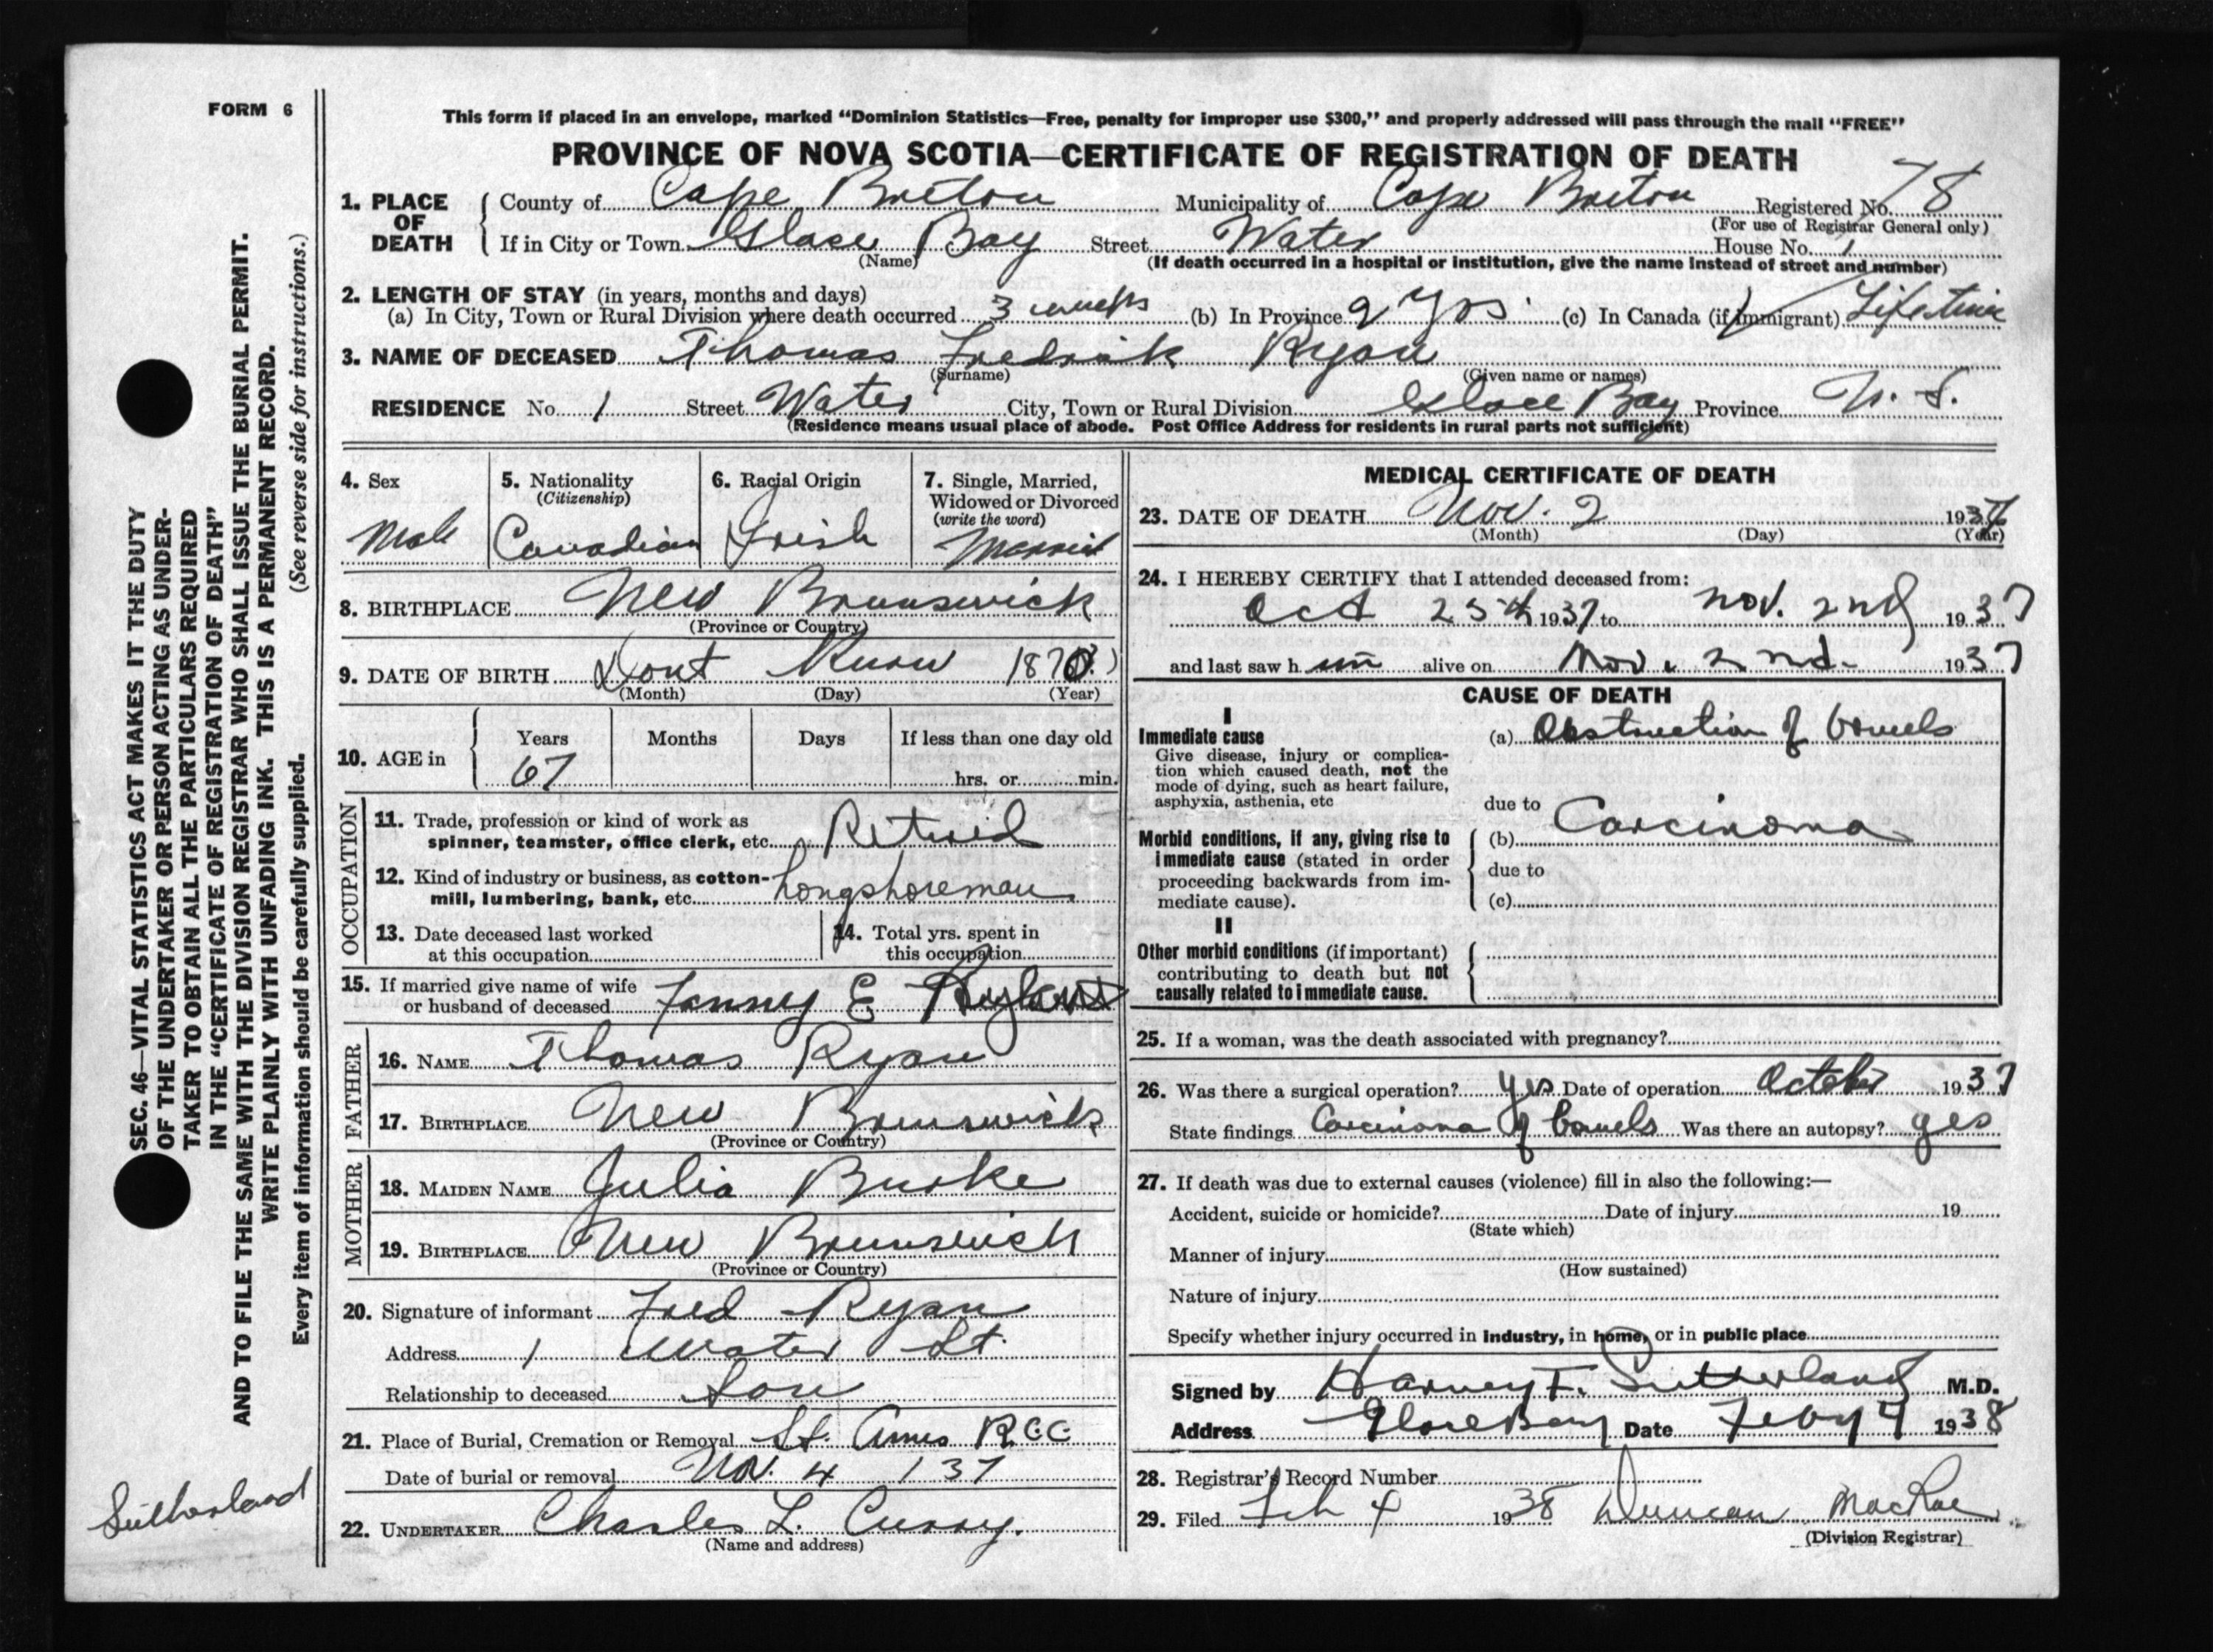 FORM 6
This form if placed in an envelope, marked "Dominion Statistics—Free, penalty for improper use $300," and properly addressed will pass through the mail "FREE"
PROVINCE OF NOVA SCOTIA—CERTIFICATE OF REGISTRATION OF DEATH
1. PLACE OF DEATH
County of Cape Breton Municipality of Cape Breton Registered No. 78
(For use of Registrar General only)
If in City or Town Glace Bay Street Water House No. 1
(Name) (If death occurred in a hospital or institution, give the name instead of street and number)
2. LENGTH OF STAY (in years, months and days)
(a) In City, Town or Rural Division where death occurred 3 weeks (b) In Province 2 yrs (c) In Canada (if immigrant) Lifetime
3. NAME OF DECEASED Thomas Fredrick Ryan
(Surname) (Given name or names)
RESIDENCE No. 1 Street Water City, Town or Rural Division Glace Bay Province N. S.
(Residence means usual place of abode. Post Office Address for residents in rural parts not sufficient)
4. Sex
Male
5. Nationality
(Citizenship)
Canadian
6. Racial Origin
Irish
7. Single, Married,
Widowed or Divorced
(write the word)
Married
8. BIRTHPLACE New Brunswick
(Province or Country)
9. DATE OF BIRTH Dont Know 1870
(Month) (Day) (Year)
10. AGE in
Years Months Days If less than one day old
67 hrs. or min.
OCCUPATION
11. Trade, profession or kind of work as
spinner, teamster, office clerk, etc. Retired
12. Kind of industry or business, as cotton-
mill, lumbering, bank, etc. Longshoreman
13. Date deceased last worked
at this occupation
14. Total yrs. spent in
this occupation
15. If married give name of wife
or husband of deceased Fanny E
FATHER
16. NAME Thomas Ryan
17. BIRTHPLACE New Brunswick
(Province or Country)
MOTHER
18. MAIDEN NAME Julia Burke
19. BIRTHPLACE New Brunswick
(Province or Country)
20. Signature of informant Fred Ryan
Address 1 Water St.
Relationship to deceased Son
21. Place of Burial, Cremation or Removal St. Annes R.C.C.
Date of burial or removal Nov. 4 137
22. UNDERTAKER Charles L. Curry.
(Name and address)
MEDICAL CERTIFICATE OF DEATH
23. DATE OF DEATH Nov. 2 1937
(Month) (Day) (Year)
24. I HEREBY CERTIFY that I attended deceased from:
Oct 25th 1937 to Nov. 2nd 1937
and last saw h im alive on Nov. 2nd. 1937
CAUSE OF DEATH
I
Immediate cause (a) Obstruction of bowels
Give disease, injury or complica-
tion which caused death, not the
mode of dying, such as heart failure,
asphyxia, asthenia, etc
due to
Morbid conditions, if any, giving rise to
immediate cause (stated in order
proceeding backwards from im-
mediate cause).
(b) Carcinoma
due to
(c)
II
Other morbid conditions (if important)
contributing to death but not
causally related to immediate cause.
25. If a woman, was the death associated with pregnancy?
26. Was there a surgical operation? Yes Date of operation October 1937
State findings Carcinoma of bowels Was there an autopsy? yes
27. If death was due to external causes (violence) fill in also the following:—
Accident, suicide or homicide? Date of injury 19
(State which)
Manner of injury
(How sustained)
Nature of injury
Specify whether injury occurred in industry, in home, or in public place
Signed by Harvey F. Sutherland M.D.
Address Glace Bay Date Feby 4 1938
28. Registrar's Record Number
29. Filed Feb 4 1938 Duncan MacRae
(Division Registrar)
SEC. 46—VITAL STATISTICS ACT MAKES IT THE DUTY
OF THE UNDERTAKER OR PERSON ACTING AS UNDER-
TAKER TO OBTAIN ALL THE PARTICULARS REQUIRED
IN THE "CERTIFICATE OF REGISTRATION OF DEATH"
AND TO FILE THE SAME WITH THE DIVISION REGISTRAR WHO SHALL ISSUE THE BURIAL PERMIT.
WRITE PLAINLY WITH UNFADING INK. THIS IS A PERMANENT RECORD.
Every item of information should be carefully supplied. (See reverse side for instructions.)
Sutherland